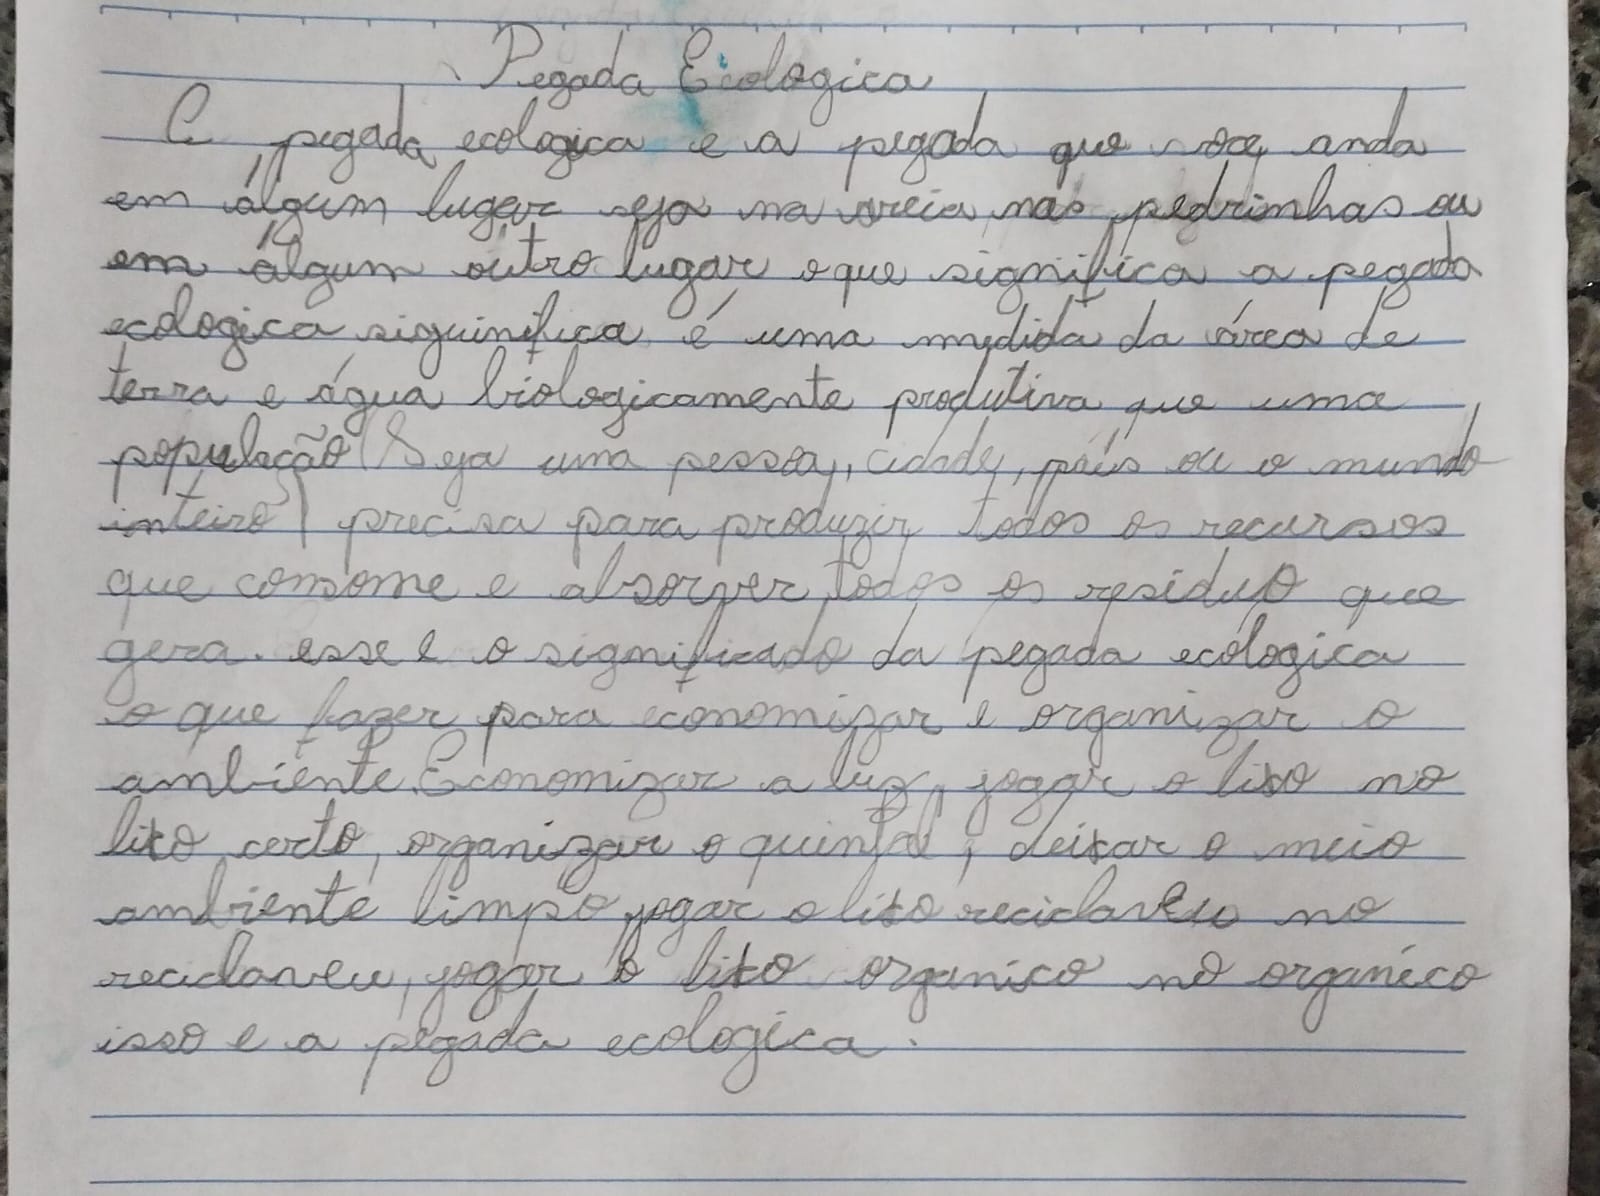 Pegada Ecologica
A pegada ecologica e a pegada que você anda
em álgum lugar seja na areia, nas pedrinhas ou
em álgum outro lugar o que significa a pegada
ecologica siguinifica é uma medida da área de
terra e água biologicamente produtiva que uma
população (Seja uma pessoa, cidade, país ou o mundo
inteiro) precisa para produzir todos os recursos
que consome e absorver todos os resíduo que
gera. esse e o significado da pegada ecologica
o que fazer para economizar e organizar o
ambiente. Economizar a luz, jogar o lixo no
lixo certo, organizar o quintal, deixar o meio
ambiente limpo, jogar o lixo reciclaveu no
reciclaveu, jogar o lixo organico no organico
isso e a pegada ecologica.